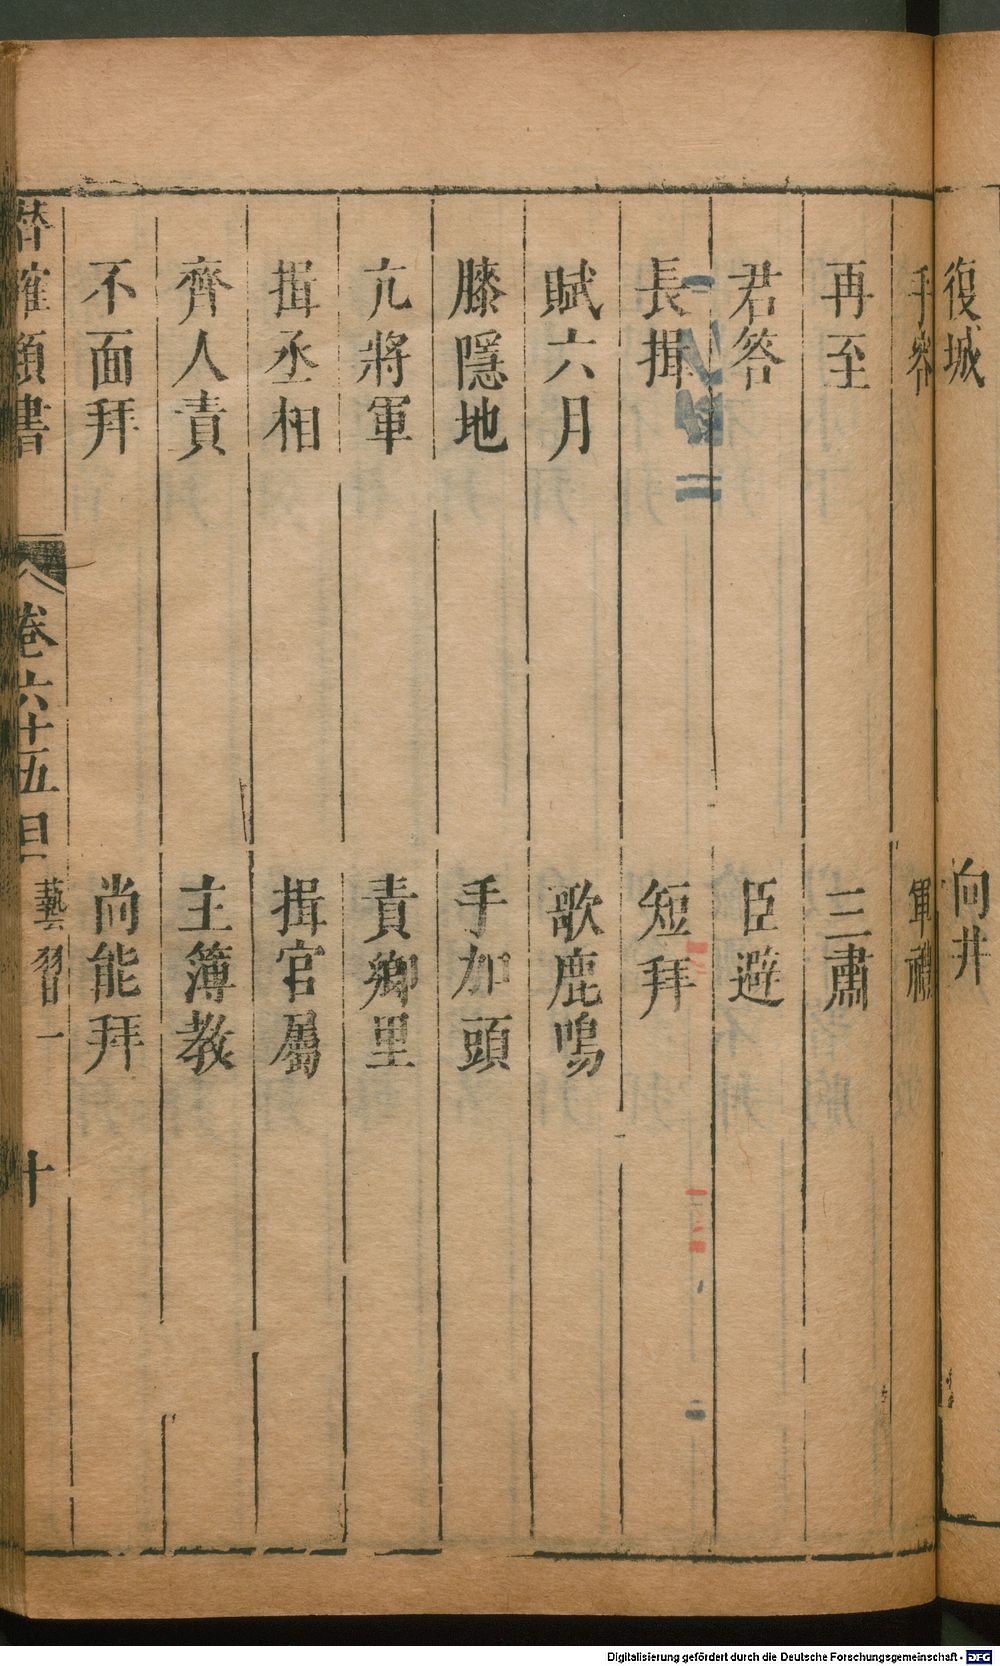 復城 向井
手容 軍禮
再至 三肅
君答 臣避
長揖 短拜
賦六月 歌鹿鳴
膝隱地 手加頭
亢將軍 責鄉里
揖丞相 揖官屬
齊人責 主簿教
不面拜 尚能拜
潛確類書 卷六十五目 藝習一 十
Digitalisierung gefördert durch die Deutsche Forschungsgemeinschaft - DFG